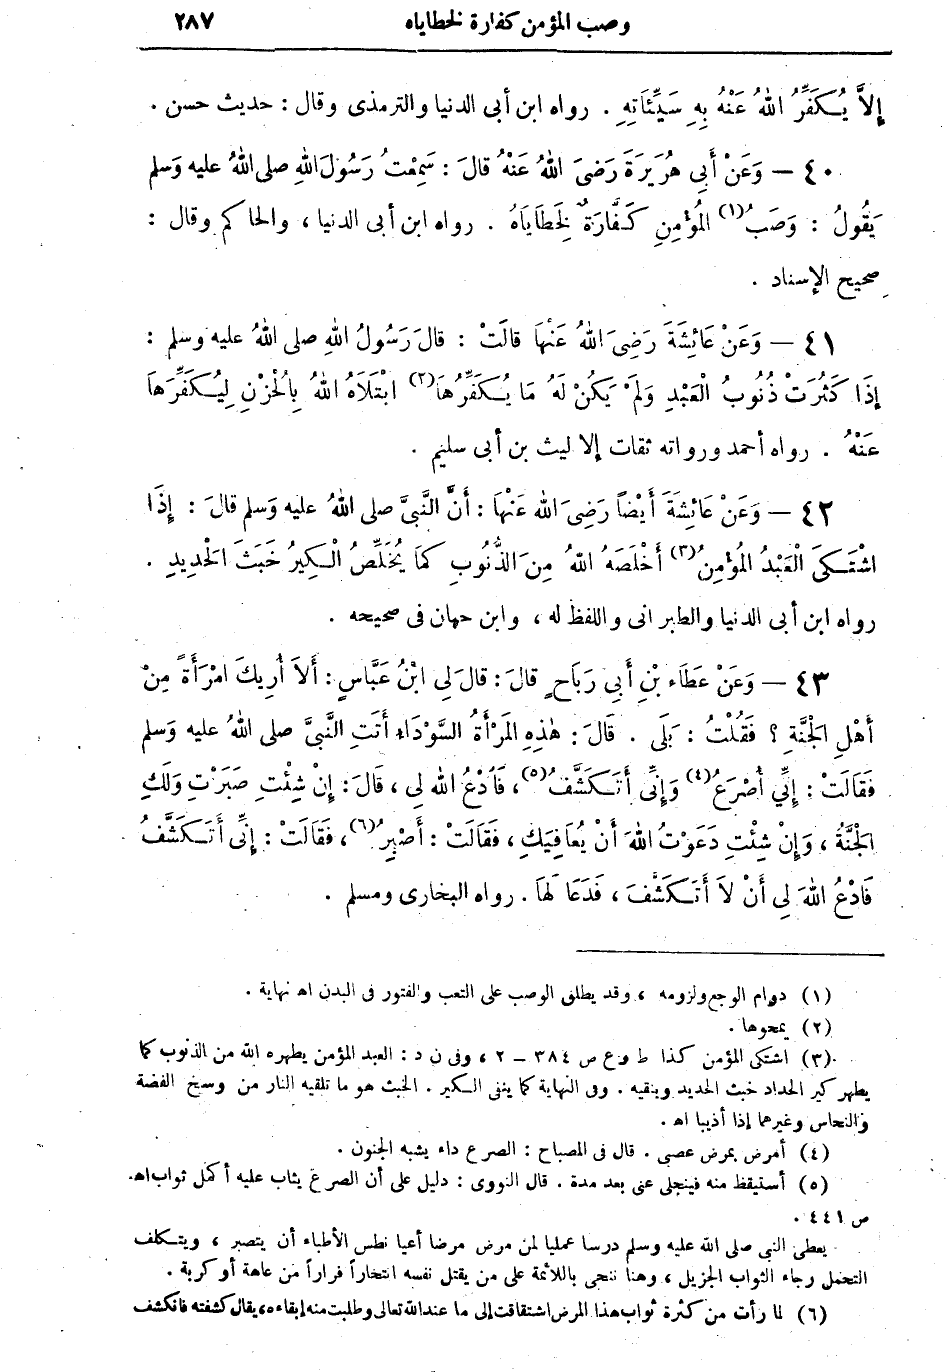 وصب المؤمن كفارة لخطاياه ٢٨٧
إِلاَّ يُكَفِّرُ اللهُ عَنْهُ بِهِ سَيِّئَاتِهِ . رواه ابن أبى الدنيا والترمذى وقال : حديث حسن .
٤٠ — وَعَنْ أَبِي هُرَيْرَةَ رَضِىَ اللهُ عَنْهُ قالَ : سَمِعْتُ رَسُولَ اللهِ صلى اللهُ عليه وَسلم
يَقُولُ : وَصَبُ(١) المُؤْمِنِ كَفَّارَةٌ لِخَطَايَاهُ . رواه ابن أبى الدنيا ، والحاكم وقال :
صحيح الإسناد .
٤١ — وَعَنْ عَائِشَةَ رَضِىَ اللهُ عَنْهَا قالَتْ : قالَ رَسُولُ اللهِ صلى اللهُ عليه وسلم :
إِذَا كَثُرَتْ ذُنُوبُ الْعَبْدِ وَلَمْ يَكُنْ لَهُ مَا يُكَفِّرُهَا(٢) ابْتَلاَهُ اللهُ بِالْحُزْنِ لِيُكَفِّرَهَا
عَنْهُ . رواه أحمد ورواته ثقات إلا ليث بن أبى سليم .
٤٢ — وَعَنْ عَائِشَةَ أَيْضاً رَضِىَ الله عَنْهَا : أَنَّ النَّبِيَّ صلى اللهُ عليه وَسلم قالَ : إِذَا
اشْتَكَى الْعَبْدُ المُؤْمِنُ(٣) أَخْلَصَهُ اللهُ مِنَ الذُّنُوبِ كَمَا يُخَلِّصُ الْكِيرُ خَبَثَ الْحَدِيدِ .
رواه ابن أبى الدنيا والطبرانى واللفظ له ، وابن حهان فى صحيحه .
٤٣ — وَعَنْ عَطَاء بْنِ أَبِي رَبَاحٍ قالَ : قالَ لِي ابْنُ عَبَّاسٍ : أَلاَ أُرِيكَ امْرَأَةً مِنْ
أَهْلِ الجَنَّةِ ؟ فَقُلْتُ : بَلَى . قَالَ : هٰذِهِ المَرْأَةُ السَّوْدَاءُ أَتَتِ النَّبِيَّ صلى اللهُ عليه وَسلم
فَقَالَتْ : إِنِّي أُصْرَعُ(٤) وَإِنِّي أَتَكَشَّفُ(٥) ، فَادْعُ الله لِي ، قَالَ : إِنْ شِئْتِ صَبَرْتِ وَلَكِ
الْجَنَّةُ ، وَإِنْ شِئْتِ دَعَوْتُ اللهَ أَنْ يُعَافِيَكِ ، فَقَالَتْ : أَصْبِرُ(٦) ، فَقَالَتْ : إِنِّي أَتَكَشَّفُ
فَادْعُ اللهَ لِي أَنْ لاَ أَتَكَشَّفَ ، فَدَعَا لَهَا . رواه البخارى ومسلم .
(١) دوام الوجع ولزومه ، وقد يطلق الوصب على التعب والفتور فى البدن اه نهاية .
(٢) يمحوها .
(٣) اشتكى المؤمن كذا ط وع ص ٣٨٤ – ٢ ، وفى ن د : العبد المؤمن يطهره الله من الذنوب كما
يطهر كير الحداد خبث الحديد وينقيه . وفى النهاية كما ينفى الكير . الخبث هو ما تلقيه النار من وسخ الفضة
والنحاس وغيرهما إذا أذيبا اه .
(٤) أمرض بمرض عصبى . قال فى المصباح : الصرع داء يشبه الجنون .
(٥) أستيقظ منه فينجلى عنى بعد مدة . قال النووى : دليل على أن الصرع يثاب عليه أكمل ثواب اه
ص ٤٤١ .
يعطى النبى صلى الله عليه وسلم درسا عمليا لمن مرض مرضا أعيا نطس الأطباء أن يتصبر ، ويتكلف
التحمل رجاء الثواب الجزيل ، وهنا ننحى باللائمة على من يقتل نفسه انتحاراً فراراً من عاهة أو كربة .
(٦) لما رأت من كثرة ثواب هذا المرض اشتقاقت إلى ما عند الله تعالى وطلبت منه إبقاءه، يقال كشفته فانكشف